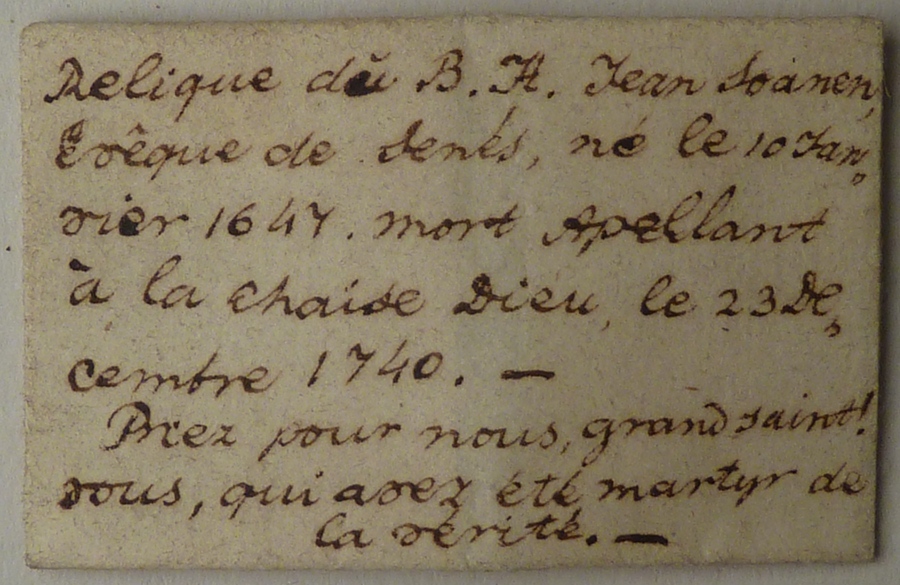 Relique du B. H. Jean Soanen,
Evêque de Senés, né le 10 Jan,
vier 1647. mort Apellant
à la Chaise Dieu, le 23 De,
cembre 1740. —
Priez pour nous, grand saint!
vous, qui avez été martyr de
la vérité. —